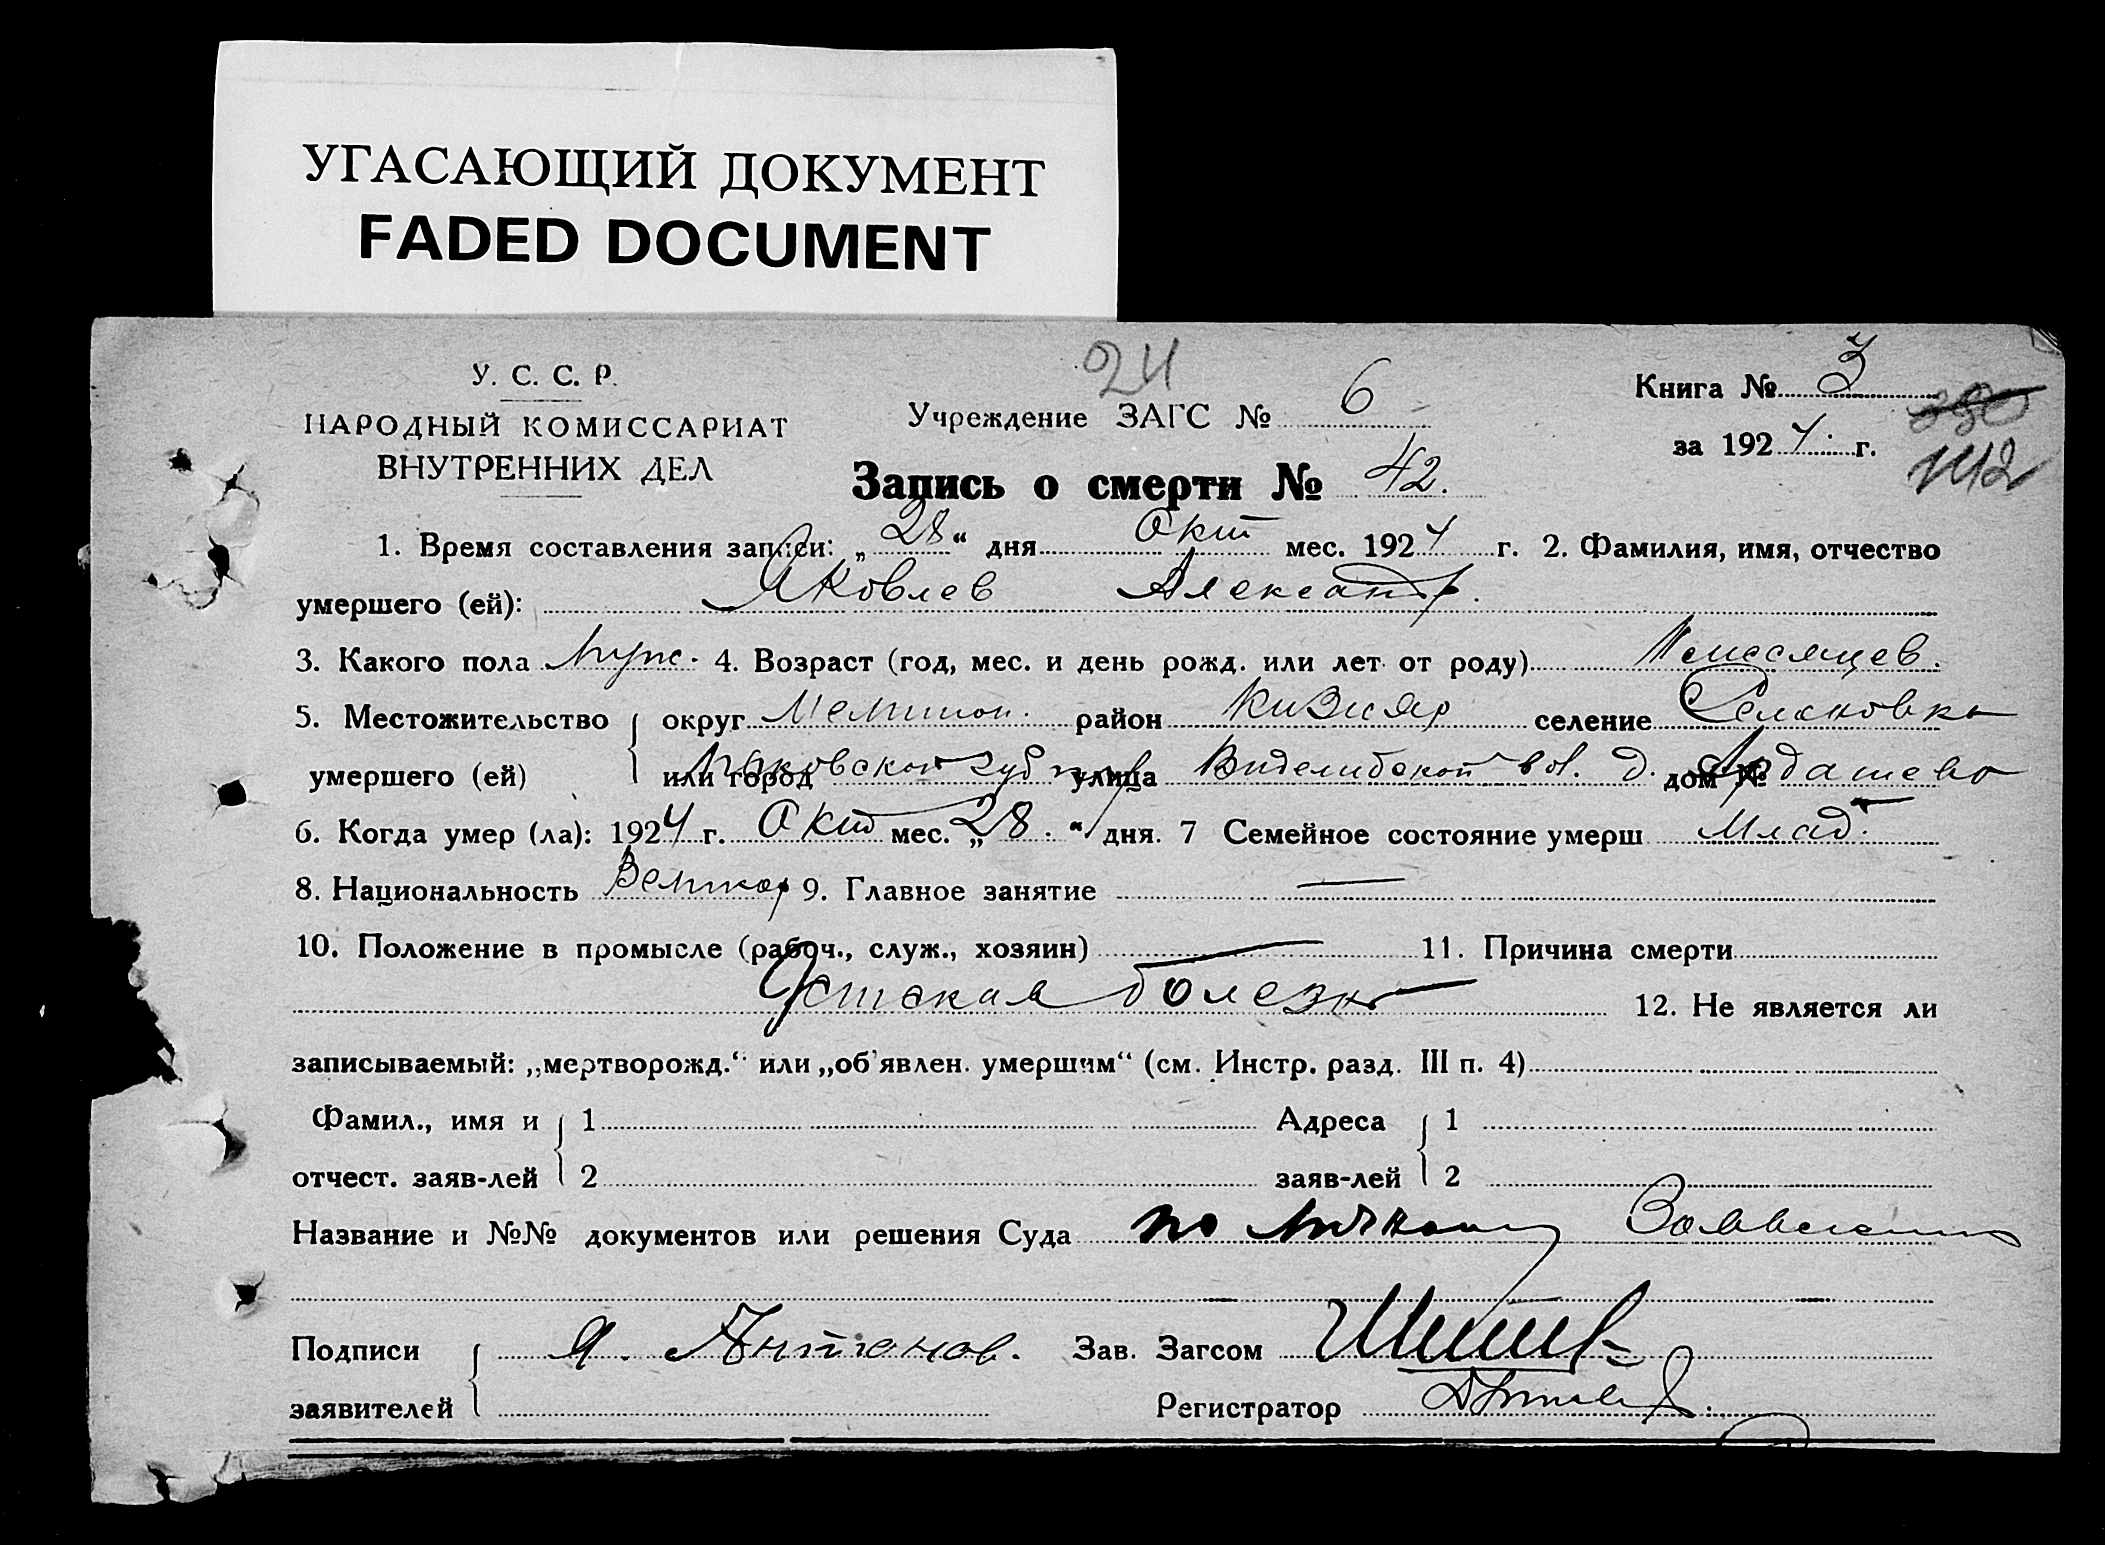 УГАСАЮЩИЙ ДОКУМЕНТ
FADED DOCUMENT
У. С. С. Р.
НАРОДНЫЙ КОМИССАРИАТ
ВНУТРЕННИХ ДЕЛ
24
Учреждение ЗАГС № 6
Запись о смерти № 42.
Книга № 3
за 1924 г.
1. Время составления записи: „28“ дня Окт мес. 1924 г. 2. Фамилия, имя, отчество
умершего (ей): Яковлев Александр.
3. Какого пола Муж. 4. Возраст (год, мес. и день рожд. или лет от роду) месяцев.
5. Местожительство округ район Кизияр селение
умершего (ей) или город губ улица вол. д. дом №
6. Когда умер (ла): 1924 г. Окт мес. „28.“ дня. 7 Семейное состояние умерш Млад.
8. Национальность Великор 9. Главное занятие —
10. Положение в промысле (рабоч., служ., хозяин) — 11. Причина смерти
Детская болезнь 12. Не является ли
записываемый: „мертворожд.“ или „об'явлен. умершим“ (см. Инстр. разд. III п. 4)
Фамил., имя и 1 Адреса 1
отчест. заяв-лей 2 заяв-лей 2
Название и №№ документов или решения Суда по личному
Подписи Я. Антонов. Зав. Загсом
заявителей Регистратор